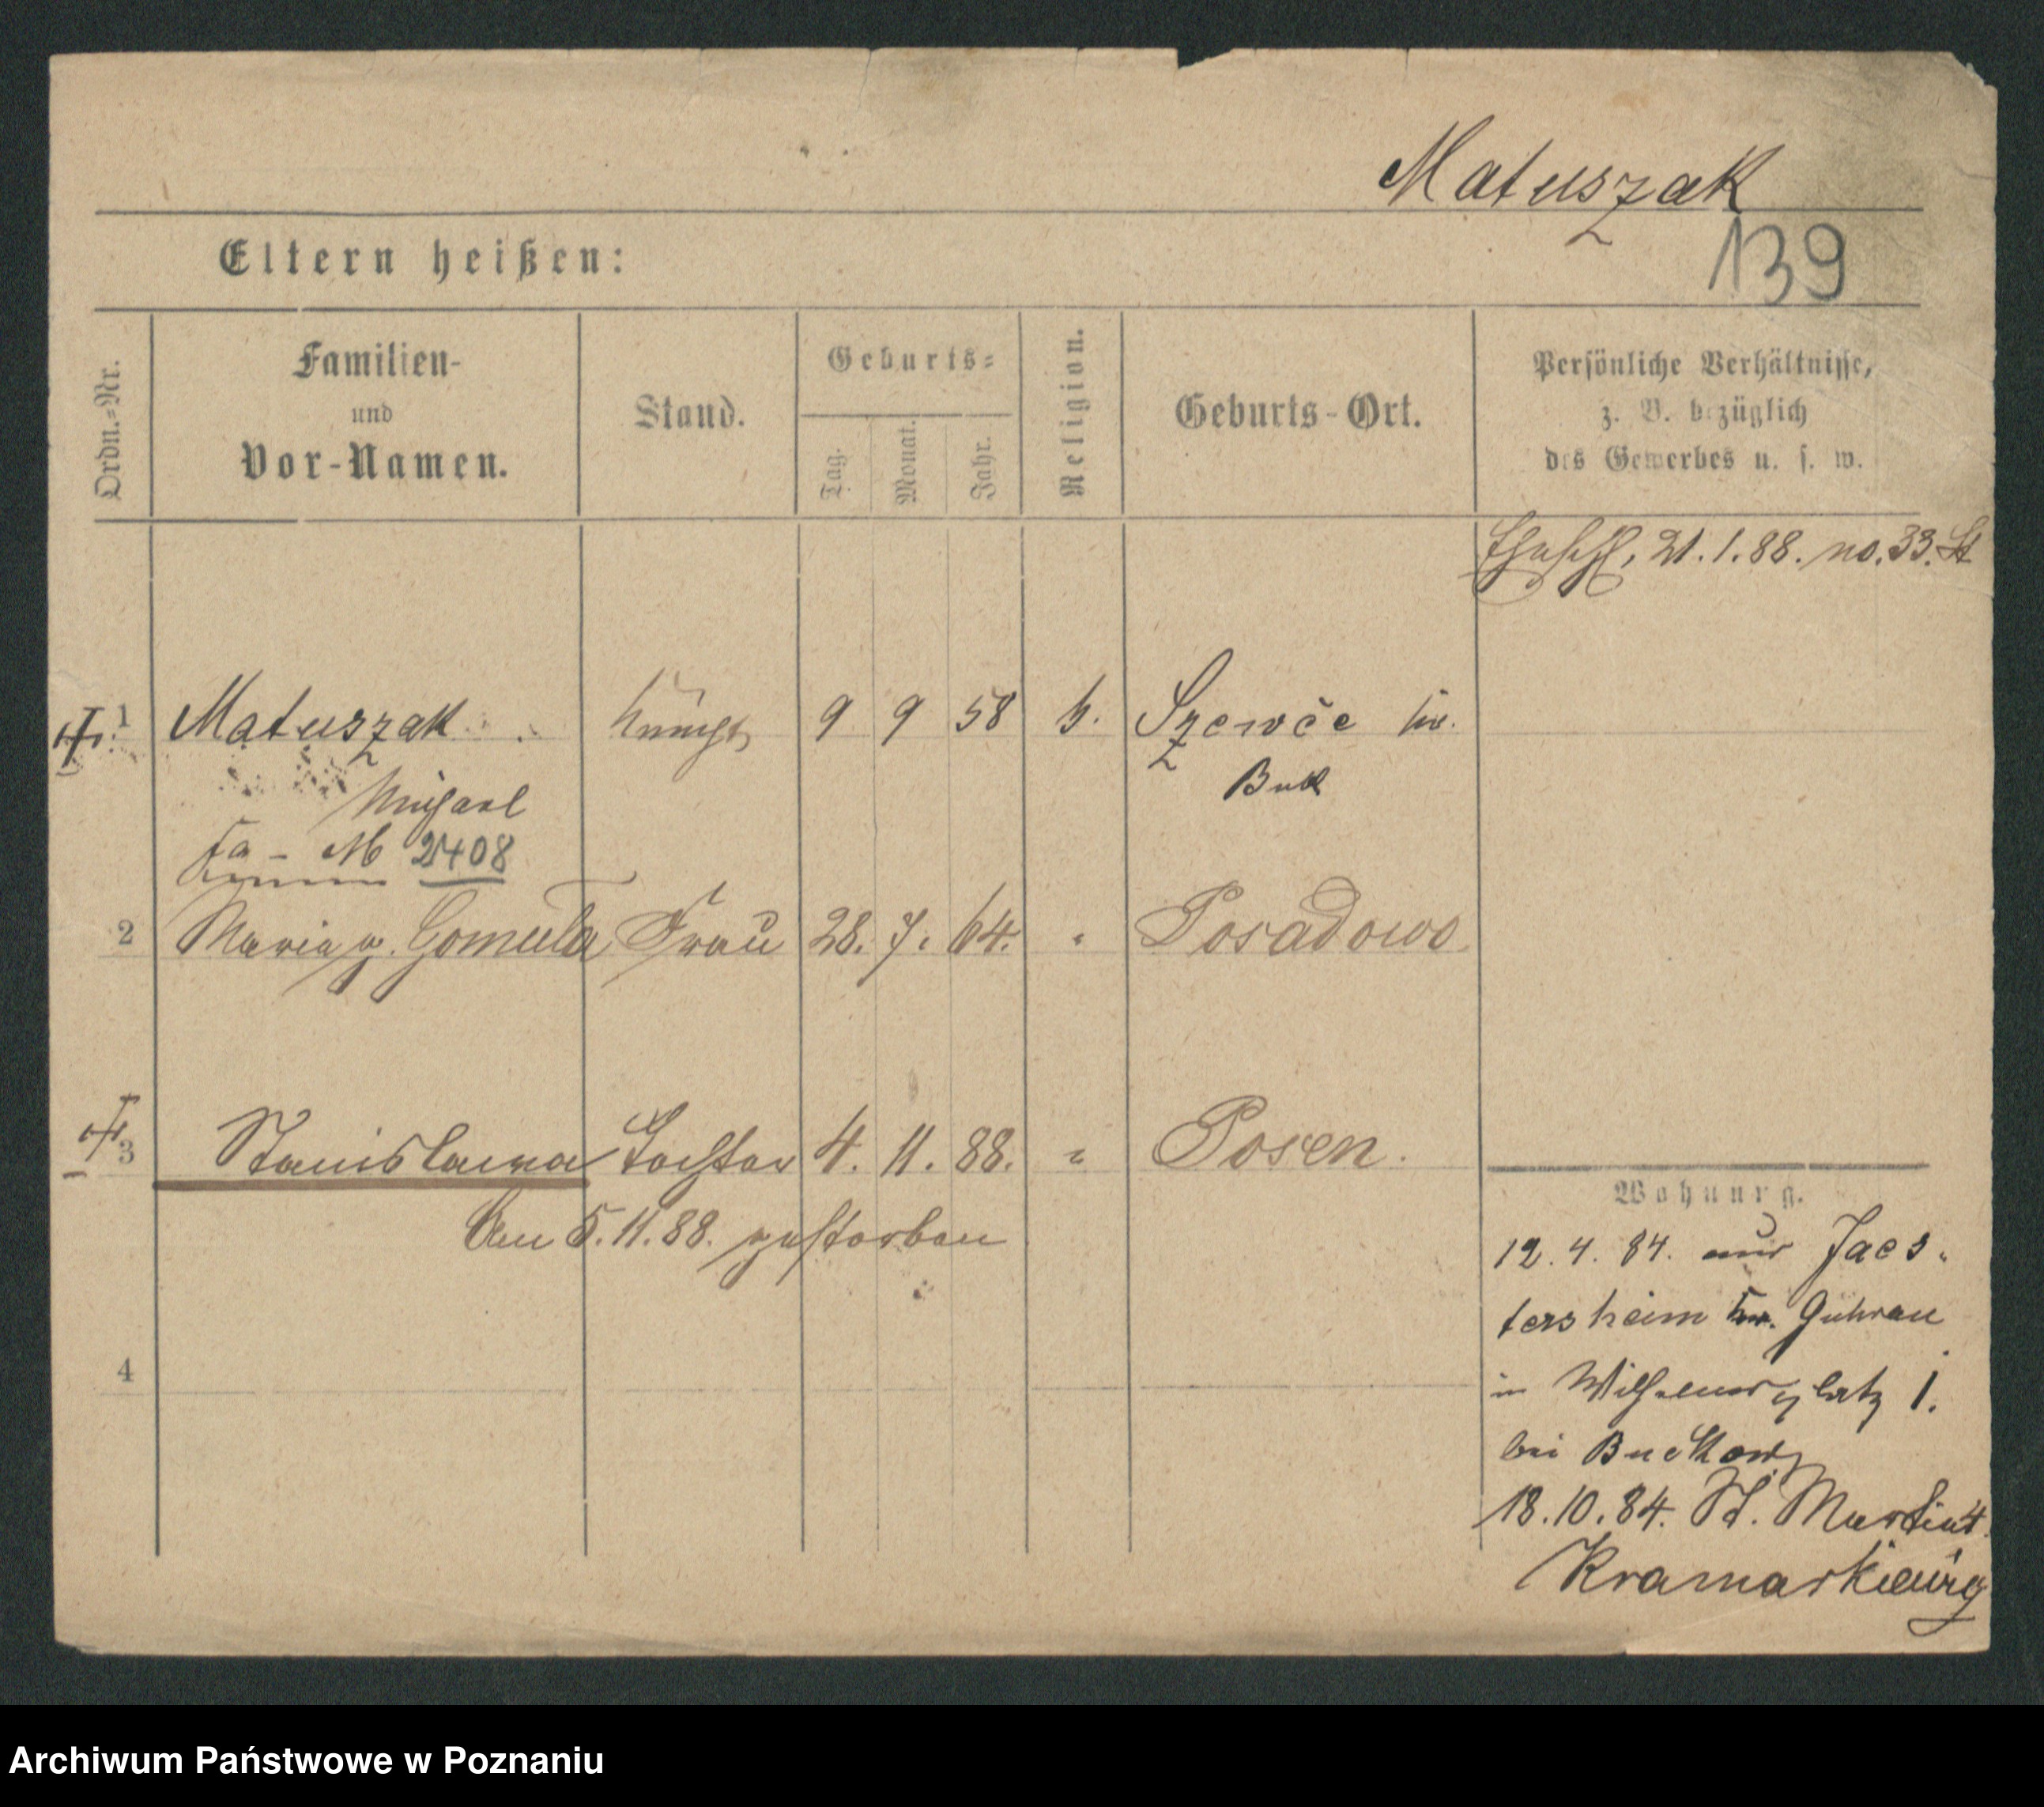 Matuszak
139
Eltern heißen:
Ordn.-Nr.
Familien-
und
Vor-Namen.
Stand.
Geburts-
Tag.
Monat.
Jahr.
Religion.
Geburts-Ort.
Persönliche Verhältnisse,
z. B. bezüglich
des Gewerbes u. s. w.
Ehschl. 21.1.88. no. 33. St
1 Matuszak Knecht 9 9 58 k. Szewce Kr.
Buk
Michael
2408
2 Maria g. Gomula Frau 28. 7. 64. " Posadowo
3 Stanislawa Tochter 4. 11. 88. " Posen.
Am 5.11.88. gestorben
4
Wohnung.
12.4.84. aus Jaes-
tersheim Kr. Guhrau
in Wilhelmsplatz 1.
bei
18.10.84. St. Martin 4.